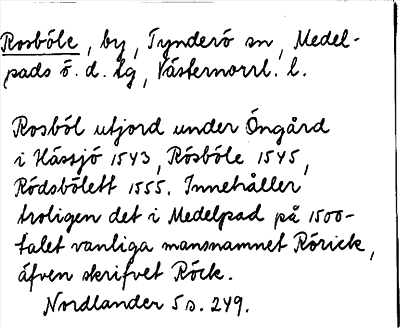 Rosböle, by, Tynderö sn, Medel-
pads ö. d. lg, Västernorrl. l.
Rosböl utjord under Öngård
i Hässjö 1543, Rösböle 1545,
Rödsbölett 1555. Innehåller
troligen det i Medelpad på 1500-
talet vanliga mansnamnet Rörick,
äfven skrifvet Röck.
Nordlander 5 s. 249.